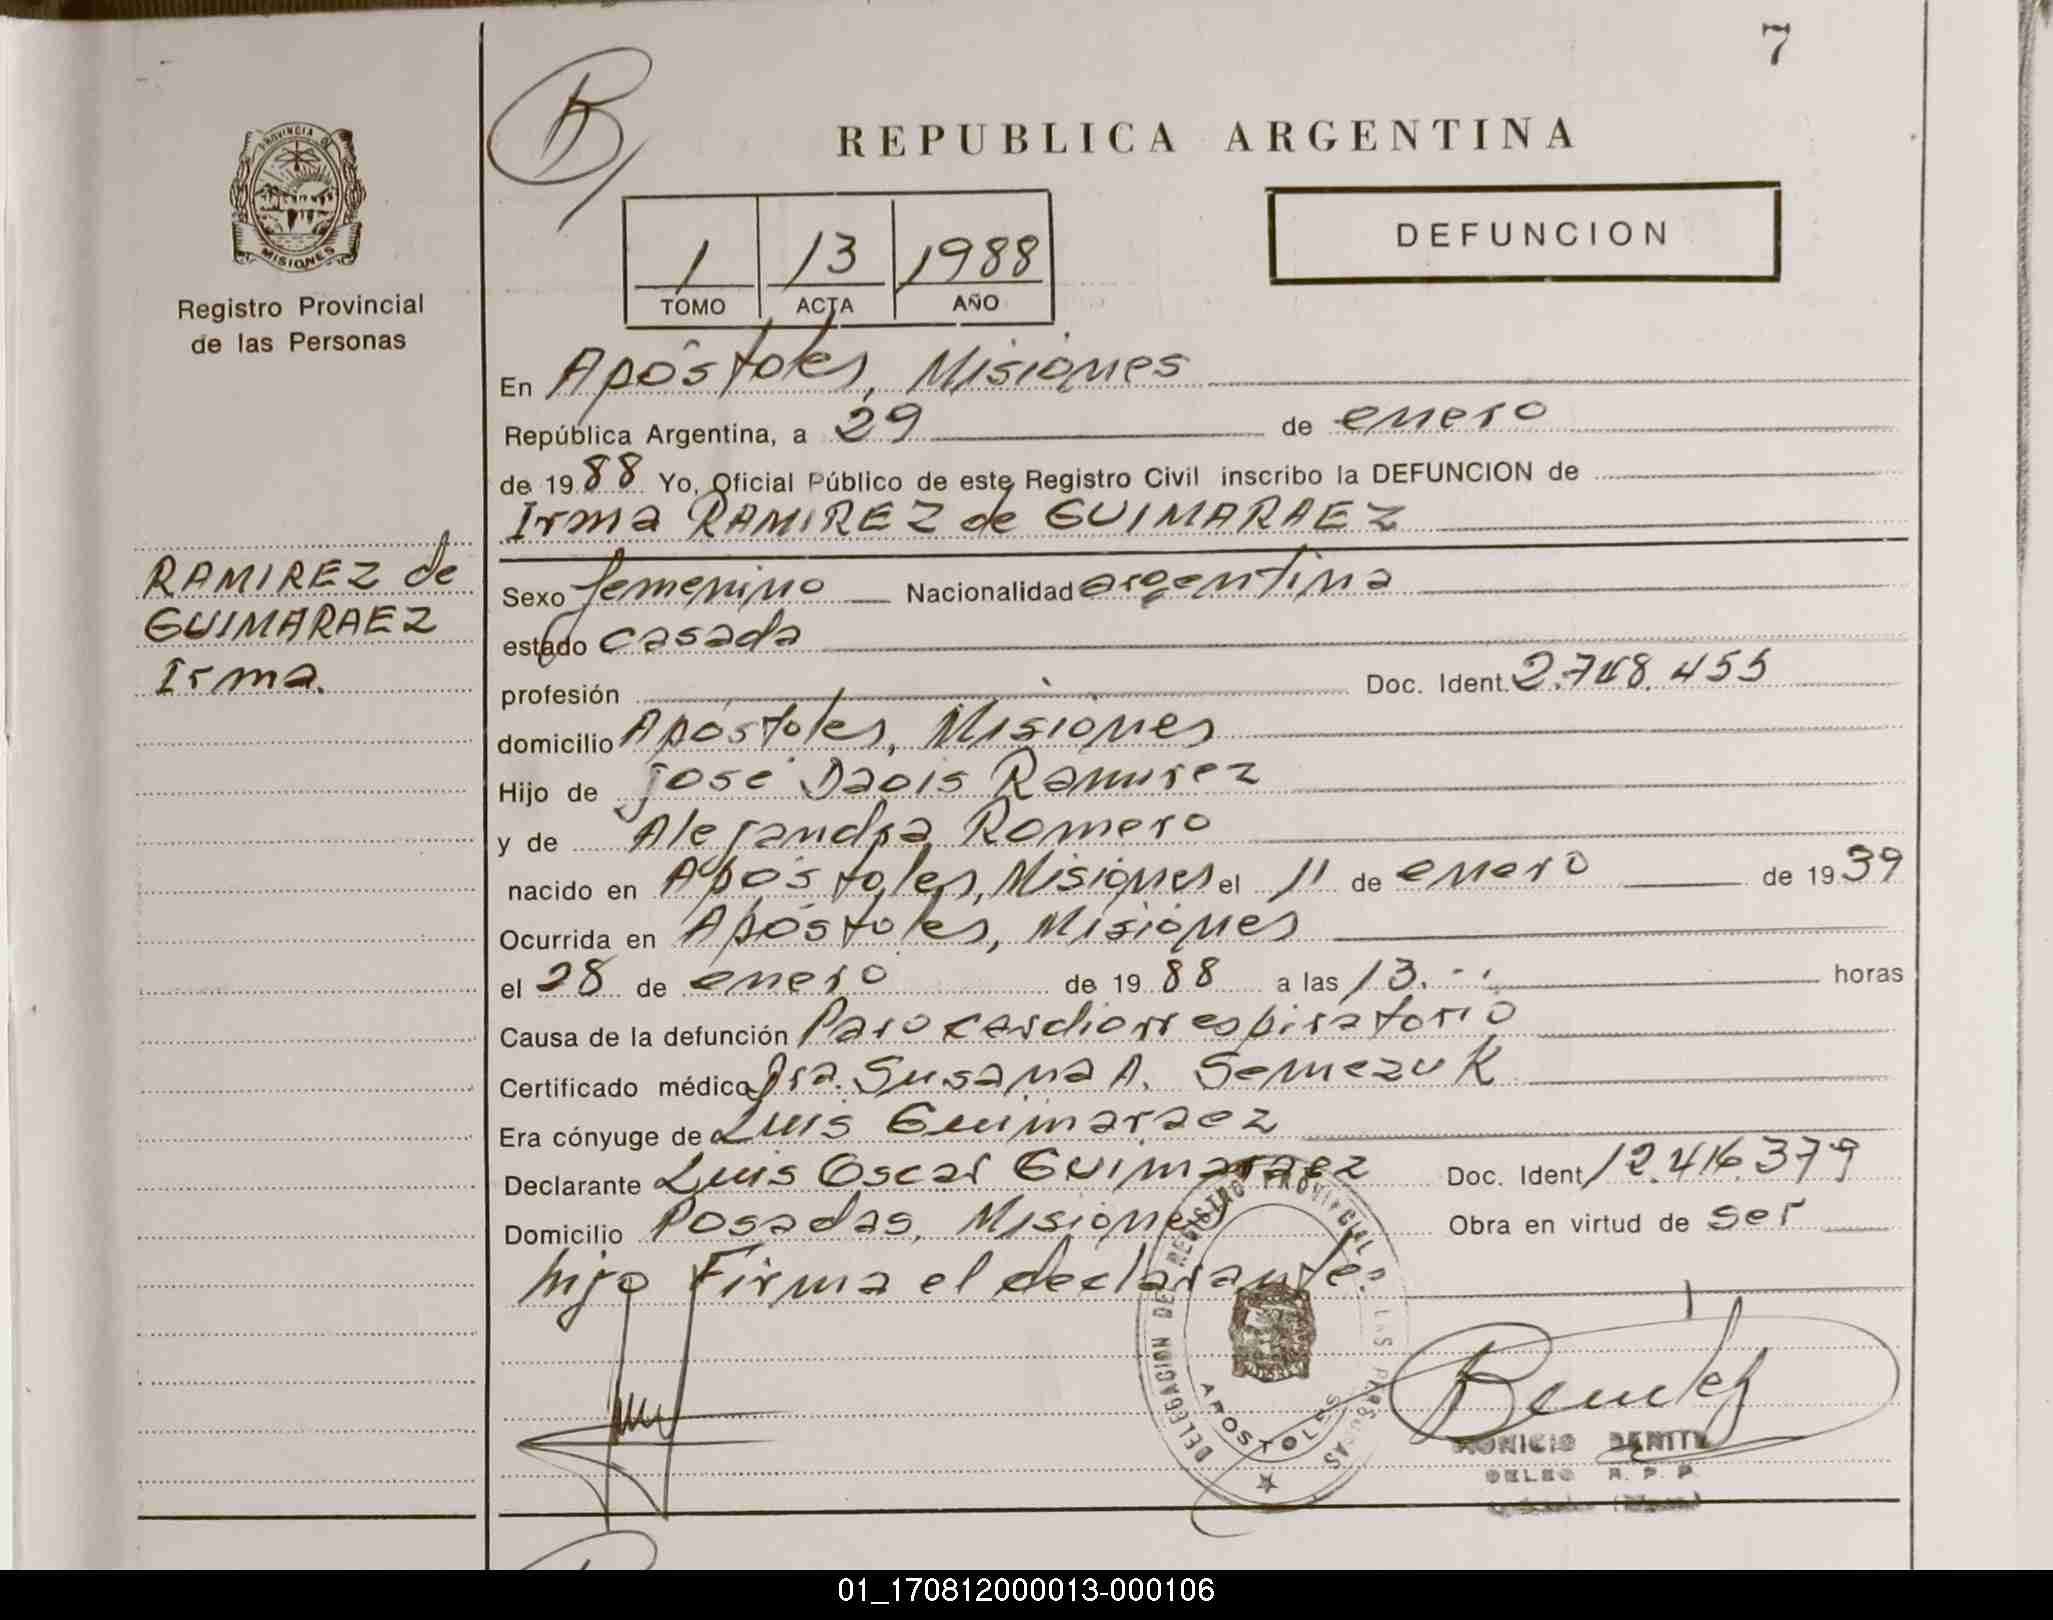 7
REPUBLICA ARGENTINA
PROVINCIA DE
MISIONES
Registro Provincial
de las Personas
1 13 1988
TOMO ACTA AÑO
DEFUNCION
En Apóstoles, Misiones
República Argentina, a 29 de enero
de 1988 Yo, Oficial Público de este Registro Civil inscribo la DEFUNCION de
Irma RAMIREZ de GUIMARAEZ
RAMIREZ de
GUIMARAEZ
Irma.
Sexo femenino Nacionalidad argentina
estado casada
profesión Doc. Ident. 2.748.455
domicilio Apóstoles, Misiones
Hijo de José Ramirez
y de Alejandra Romero
nacido en Apóstoles, Misiones el 11 de enero de 1939
Ocurrida en Apóstoles, Misiones
el 28 de enero de 1988 a las 13. horas
Causa de la defunción Paro cardiorrespiratorio
Certificado médico Dra. Susana A. Semezuk
Era cónyuge de Luis Guimaraez
Declarante Luis Oscar Guimaraez Doc. Ident 12.416.379
Domicilio Posadas, Misiones Obra en virtud de ser
hijo Firma el declarante.
DELEGACION DEL REGISTRO PROVINCIAL DE LAS PERSONAS
APOSTOLES
DELEG R. P. P.
01_170812000013-000106